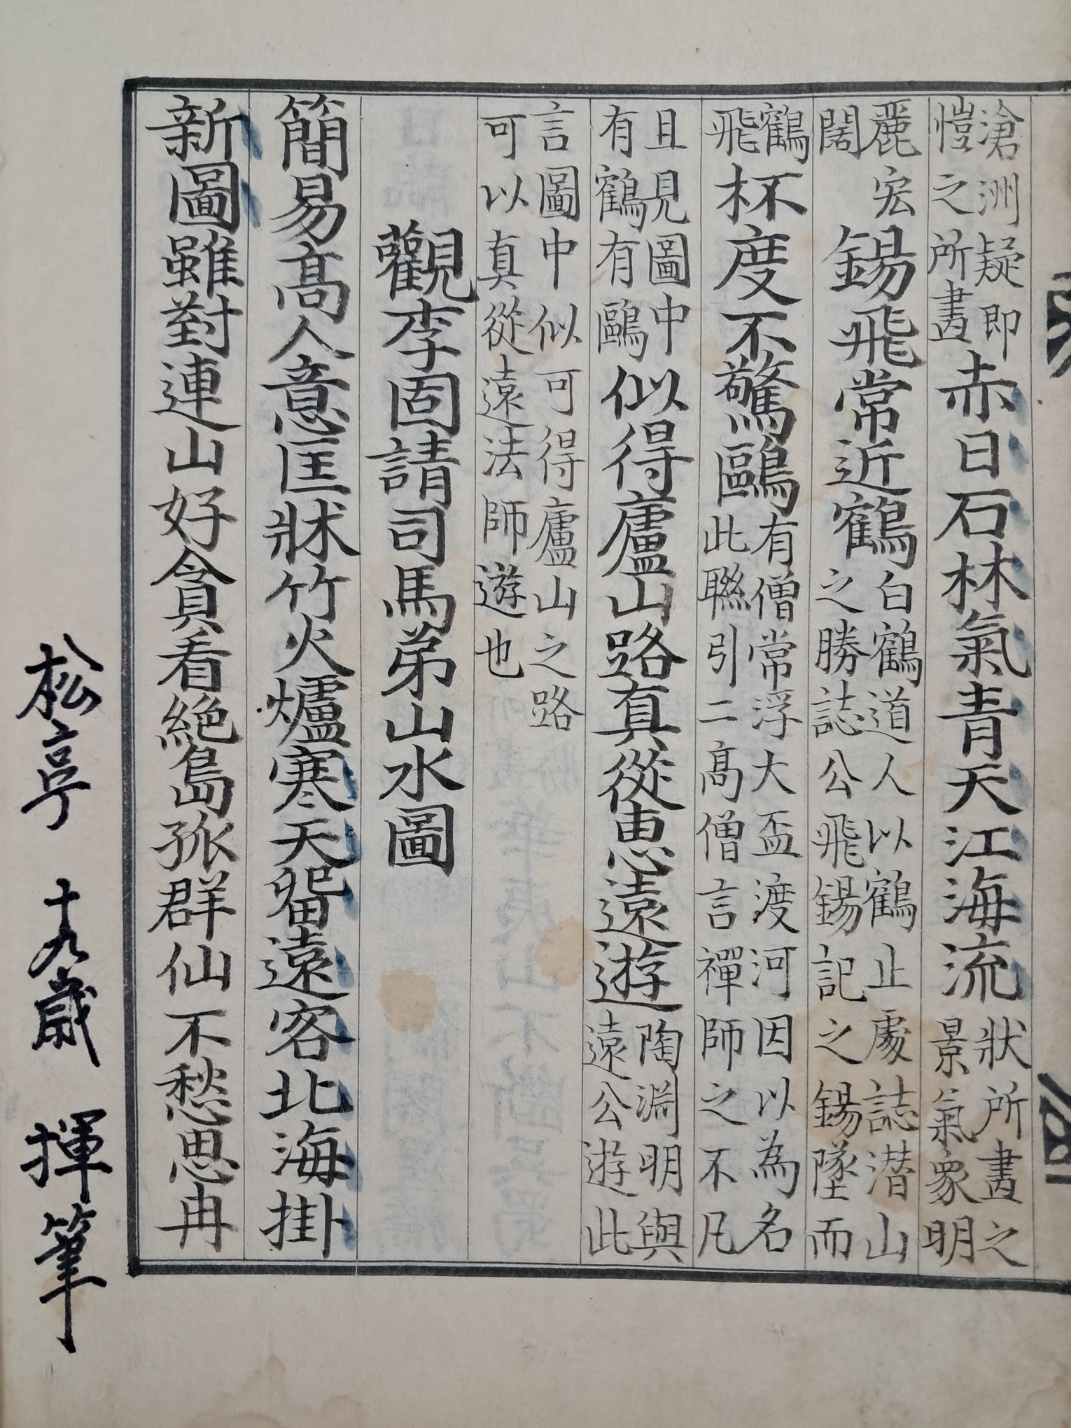 滄洲疑即
愷之所畫赤日石林氣青天江海流狀所畫之
景氣象明
麗宏
闊錫飛常近鶴白鶴道人以鶴止處誌潜山
之勝誌公飛錫記之錫墜而
鶴
飛杯度不驚鷗有僧常浮大盃渡河因以為名
此聮引二高僧言禪師之不凡
且見圖中
有鶴有鷗似得廬山路真從惠遠遊陶淵明與
遠公遊此
言圖中似可得廬山之路
可以真從遠法師遊也
觀李固請司馬弟山水圖
簡易高人意匡牀竹火爐寒天留遠客北海掛
新圖雖對連山好貪看絶島孤群仙不愁思冉
松亭 十九歲 揮筆